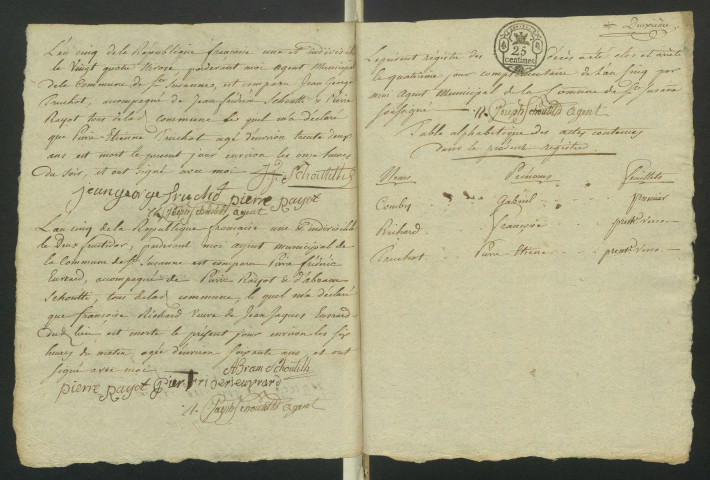 L'an cinq de la Republique francaise une et indivisible
le Vingt quatre Nivose, pardevant moi Agent Municipal
de la Commune de Ste Suzanne, est comparu Jean George
Truchot, acompagné de Jean fredric Schoutti & Pierre
Rayot tous de la commune le quel m'a déclaré
que Pierre Etienne Truchot agé d'environ trente deux
ans est mort le present jour environ les onze heures
du soir, et ont signé avec moi
jean george truchot pierre rayot
agent
L'an cinq de la Republique francaise une & indivisible
le Deux fructidor, pardevant moi agent municipal de
la Commune de Ste Suzanne est comparu Pierre fredric
Euvrard, accompagné de Pierre Rayot & d'abram
Schoutti, tous de la commune, le quel m'a déclaré
que francoise Richard Veuve de Jean Jaques Euvrard
dud lieu est morte le présent jour environ les six
heures du matin, agée d'environ soixante ans, et ont
signé avec moi
Abram Schoutith
pierre rayot
agent
Deuxieme
25
centimes
Le présent registre des Décès a été clos et arrêté
le quatrieme jour complementaire de l'an Cinq par
moi Agent Municipal de la Commune de Ste Suzane
soussigné
agent
Table alphabetique des actes contenues
dans le présent registre
Noms Prenoms Feuillets
Combes Gabriel premier
Richard françoise
Truchot Pierre Etiene